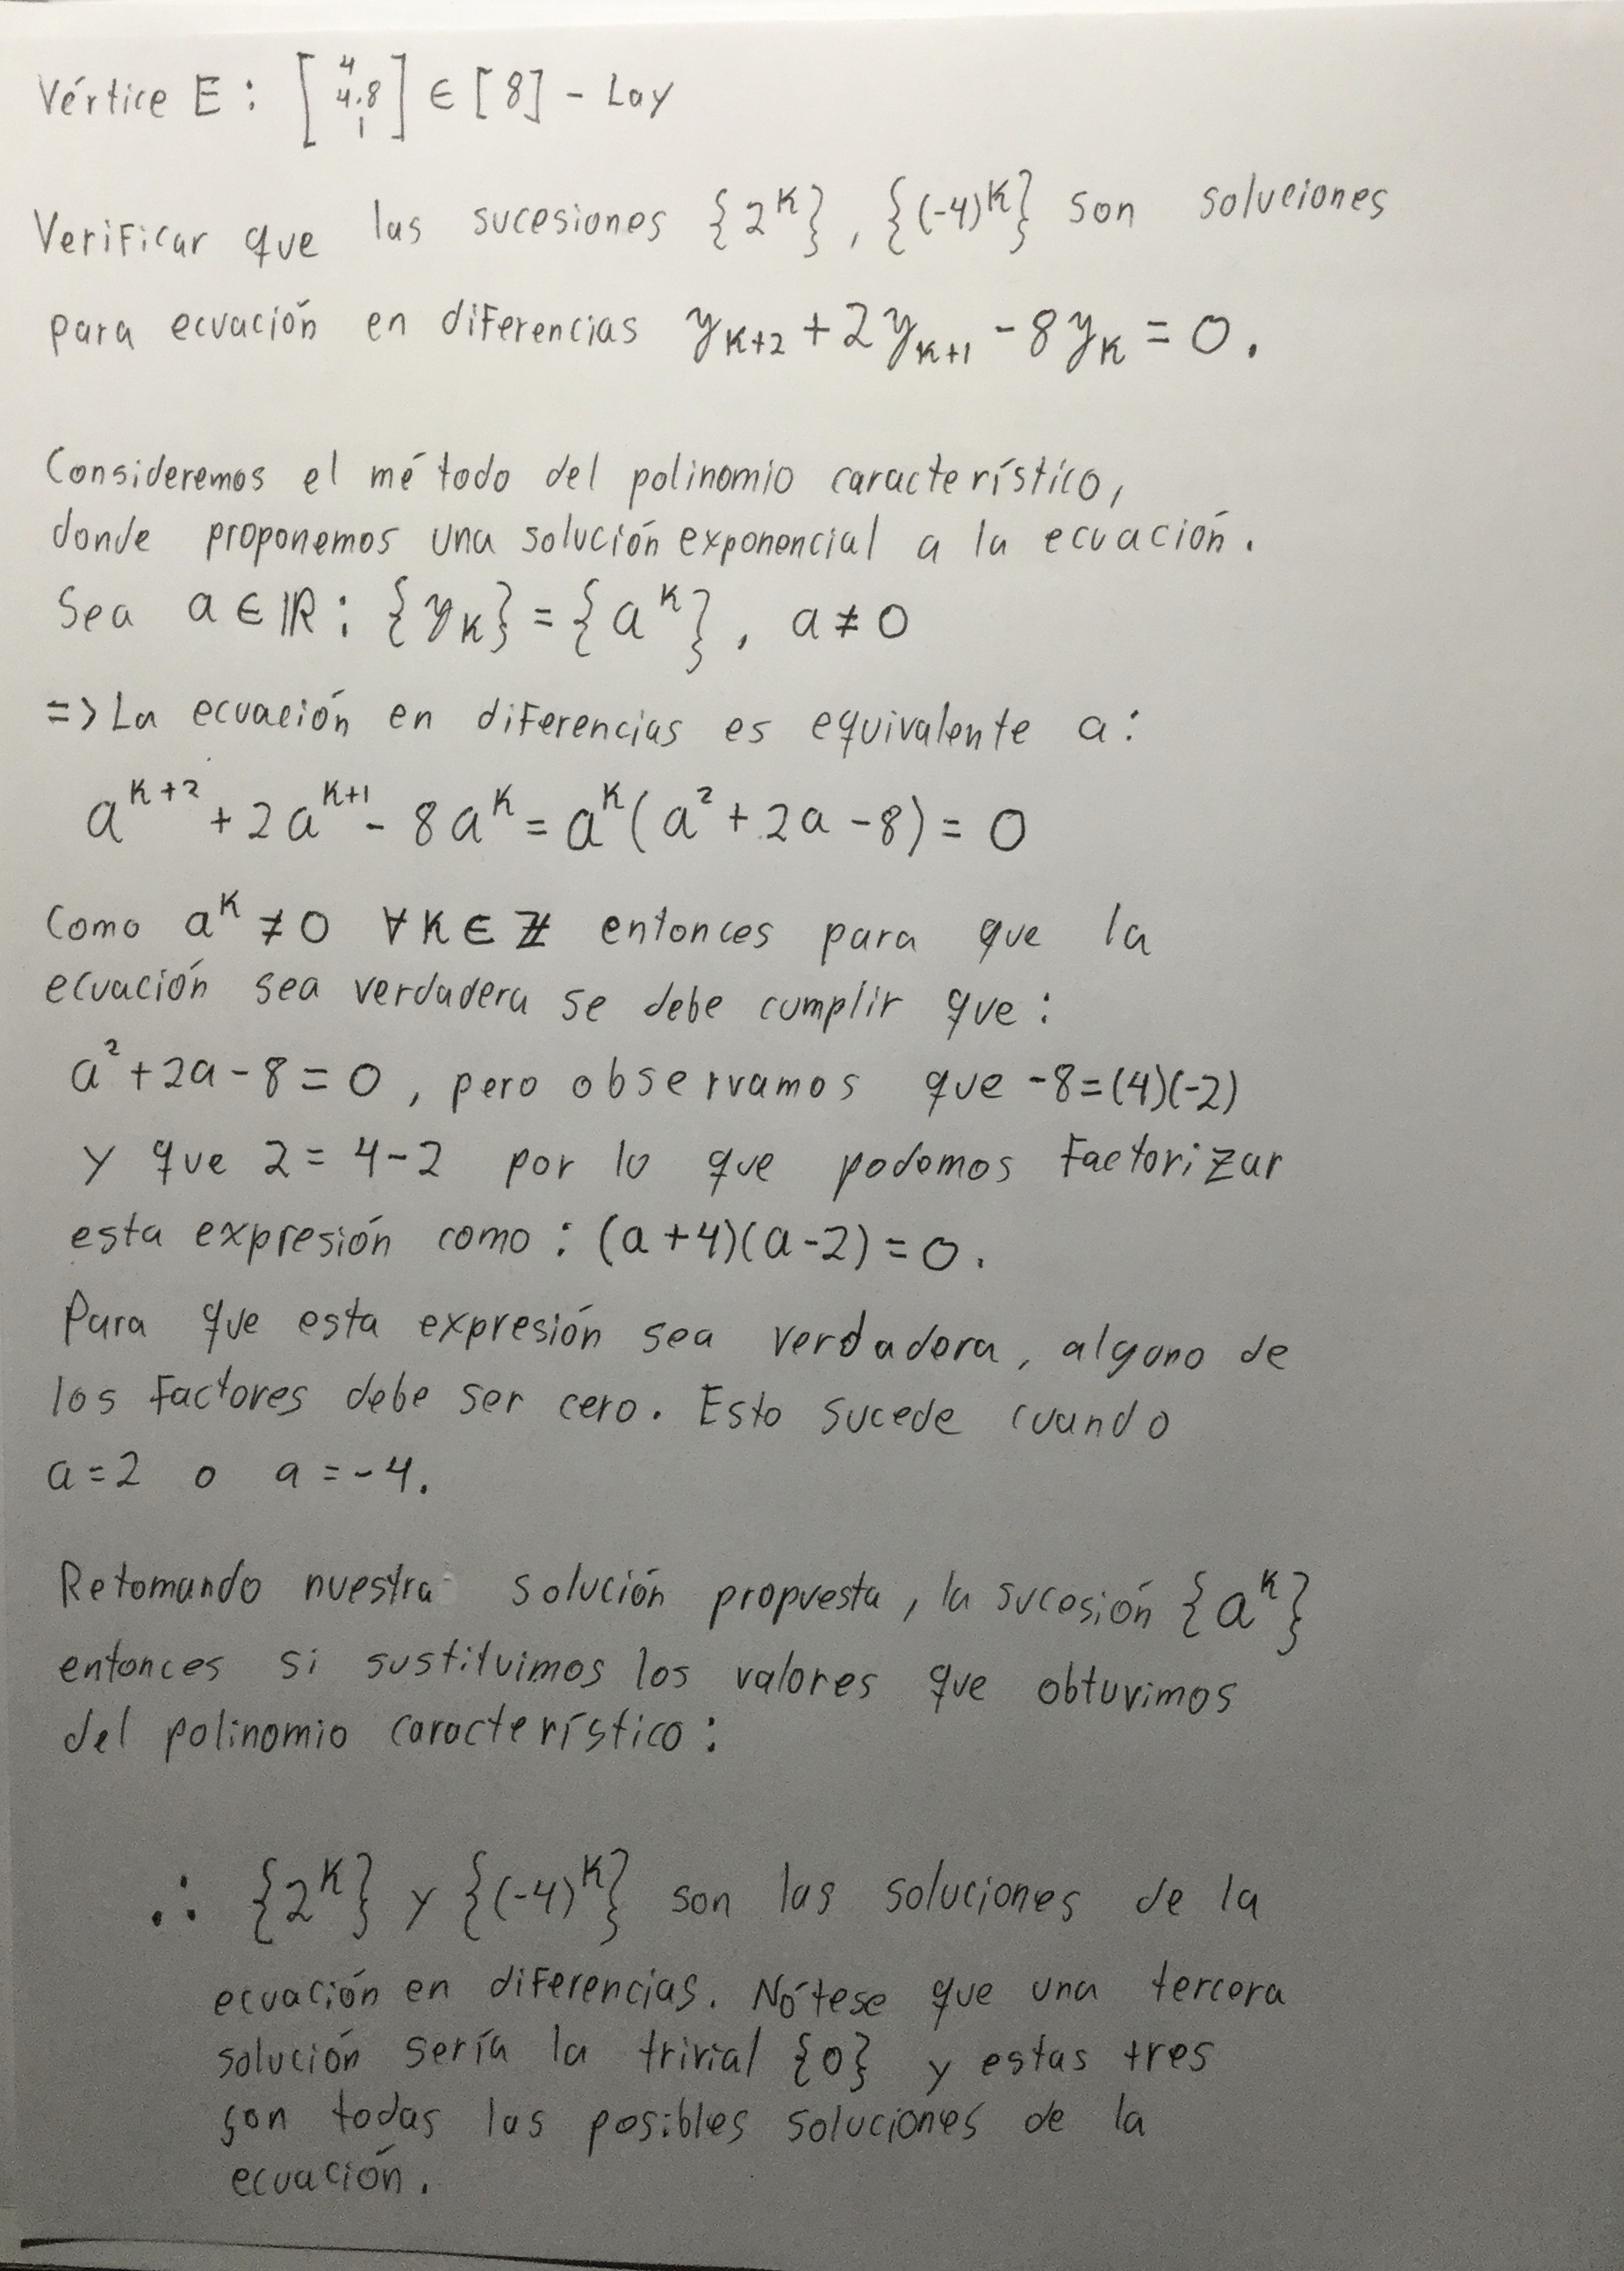 Vértice E: [4 4.8 1] ∈ [8] - Lay
Verificar que las sucesiones {2^k}, {(-4)^k} son soluciones
para ecuación en diferencias y_{k+2} + 2y_{k+1} - 8y_k = 0.
Consideremos el método del polinomio característico,
donde proponemos una solución exponencial a la ecuación.
Sea a ∈ ℝ: {y_k} = {a^k}, a ≠ 0
=> La ecuación en diferencias es equivalente a:
a^{k+2} + 2a^{k+1} - 8a^k = a^k(a^2 + 2a - 8) = 0
Como a^k ≠ 0 ∀k ∈ ℤ entonces para que la
ecuación sea verdadera se debe cumplir que:
a^2 + 2a - 8 = 0, pero observamos que -8 = (4)(-2)
y que 2 = 4 - 2 por lo que podemos factorizar
esta expresión como: (a+4)(a-2) = 0.
Para que esta expresión sea verdadera, alguno de
los factores debe ser cero. Esto sucede cuando
a = 2 o a = -4.
Retomando nuestra solución propuesta, la sucesión {a^k}
entonces si sustituimos los valores que obtuvimos
del polinomio característico:
∴ {2^k} y {(-4)^k} son las soluciones de la
ecuación en diferencias. Nótese que una tercera
solución sería la trivial {0} y estas tres
son todas las posibles soluciones de la
ecuación.